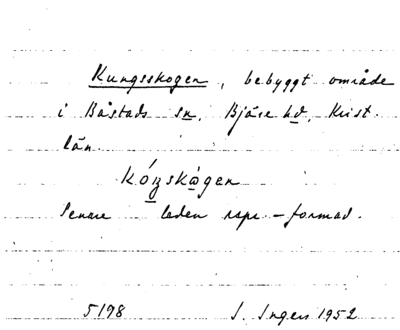 Kungsskogen, bebyggt område
i Båstads sn, Bjäre hd, Krist.
län.
kóŋskògen
Senare leden rspr-formad.
5198 I. Ingers 1952